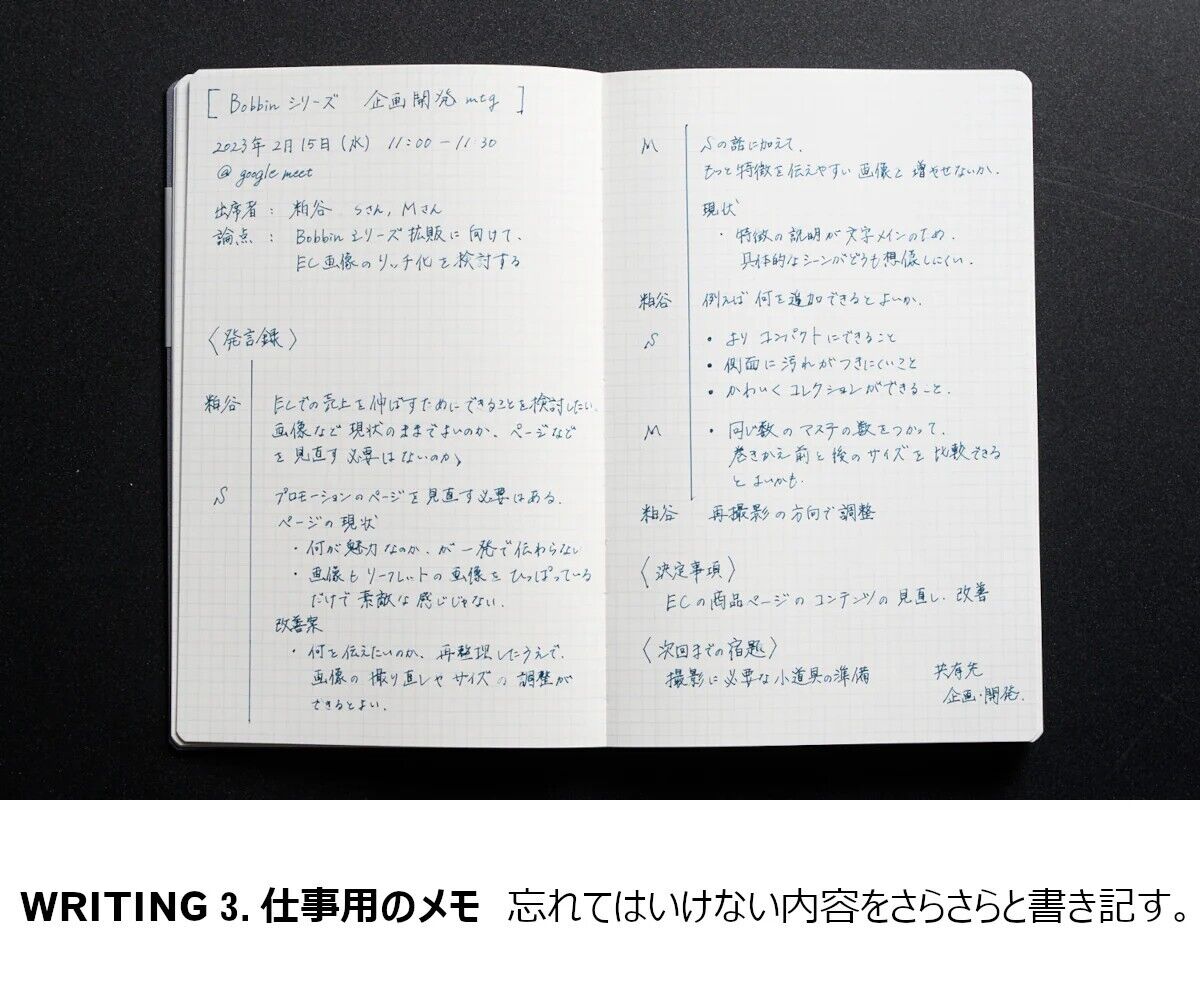 [ Bobbin シリーズ 企画開発 mtg ]
2023年2月15日(水) 11:00 - 11:30
@ google meet
出席者: 粕谷 Sさん, Mさん
論点: Bobbin シリーズ拡販に向けて、
EC画像のリッチ化を検討する
〈発言録〉
粕谷 ECでの売上を伸ばすためにできることを検討したい。
画像など現状のままでよいのか、ページなど
を見直す必要はないのか、
S プロモーションのページを見直す必要はある。
ページの現状
・何が魅力なのか、が一発で伝わらない
・画像もリーフレットの画像をひっぱっている
だけで素敵な感じじゃない。
改善案
・何を伝えたいのか、再整理したうえで、
画像の撮り直しやサイズの調整が
できるとよい。
M Sの話に加えて、
もっと特徴を伝えやすい画像を増やせないか。
現状
・特徴の説明が文字メインのため、
具体的なシーンがどうも想像しにくい。
粕谷 例えば何を追加できるとよいか。
S ・よりコンパクトにできること
・側面に汚れがつきにくいこと
・かわいくコレクションができること。
M ・同じ数のマステの数をつかって、
巻きかえ前と後のサイズを比較できる
とよいかも。
粕谷 再撮影の方向で調整
〈決定事項〉
ECの商品ページのコンテンツの見直し、改善
〈次回までの宿題〉
撮影に必要な小道具の準備
共有先
企画・開発.
WRITING 3. 仕事用のメモ 忘れてはいけない内容をさらさらと書き記す。